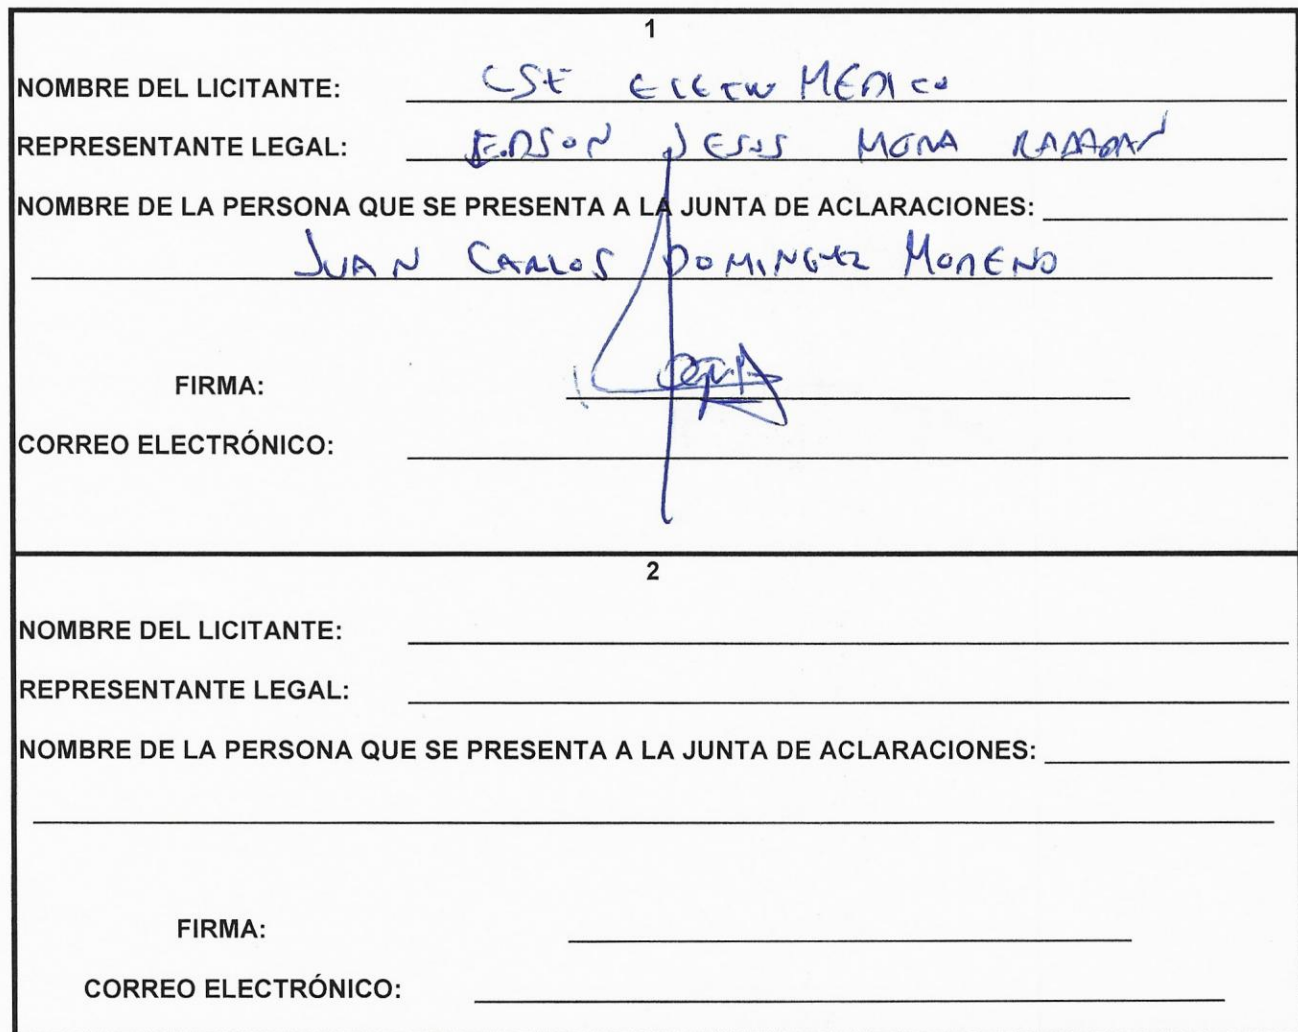 1
NOMBRE DEL LICITANTE: CSE MEDICO
REPRESENTANTE LEGAL: JESUS
NOMBRE DE LA PERSONA QUE SE PRESENTA A LA JUNTA DE ACLARACIONES:
JUAN CARLOS DOMINGUEZ MORENO
FIRMA:
CORREO ELECTRÓNICO:
2
NOMBRE DEL LICITANTE:
REPRESENTANTE LEGAL:
NOMBRE DE LA PERSONA QUE SE PRESENTA A LA JUNTA DE ACLARACIONES:
FIRMA:
CORREO ELECTRÓNICO: